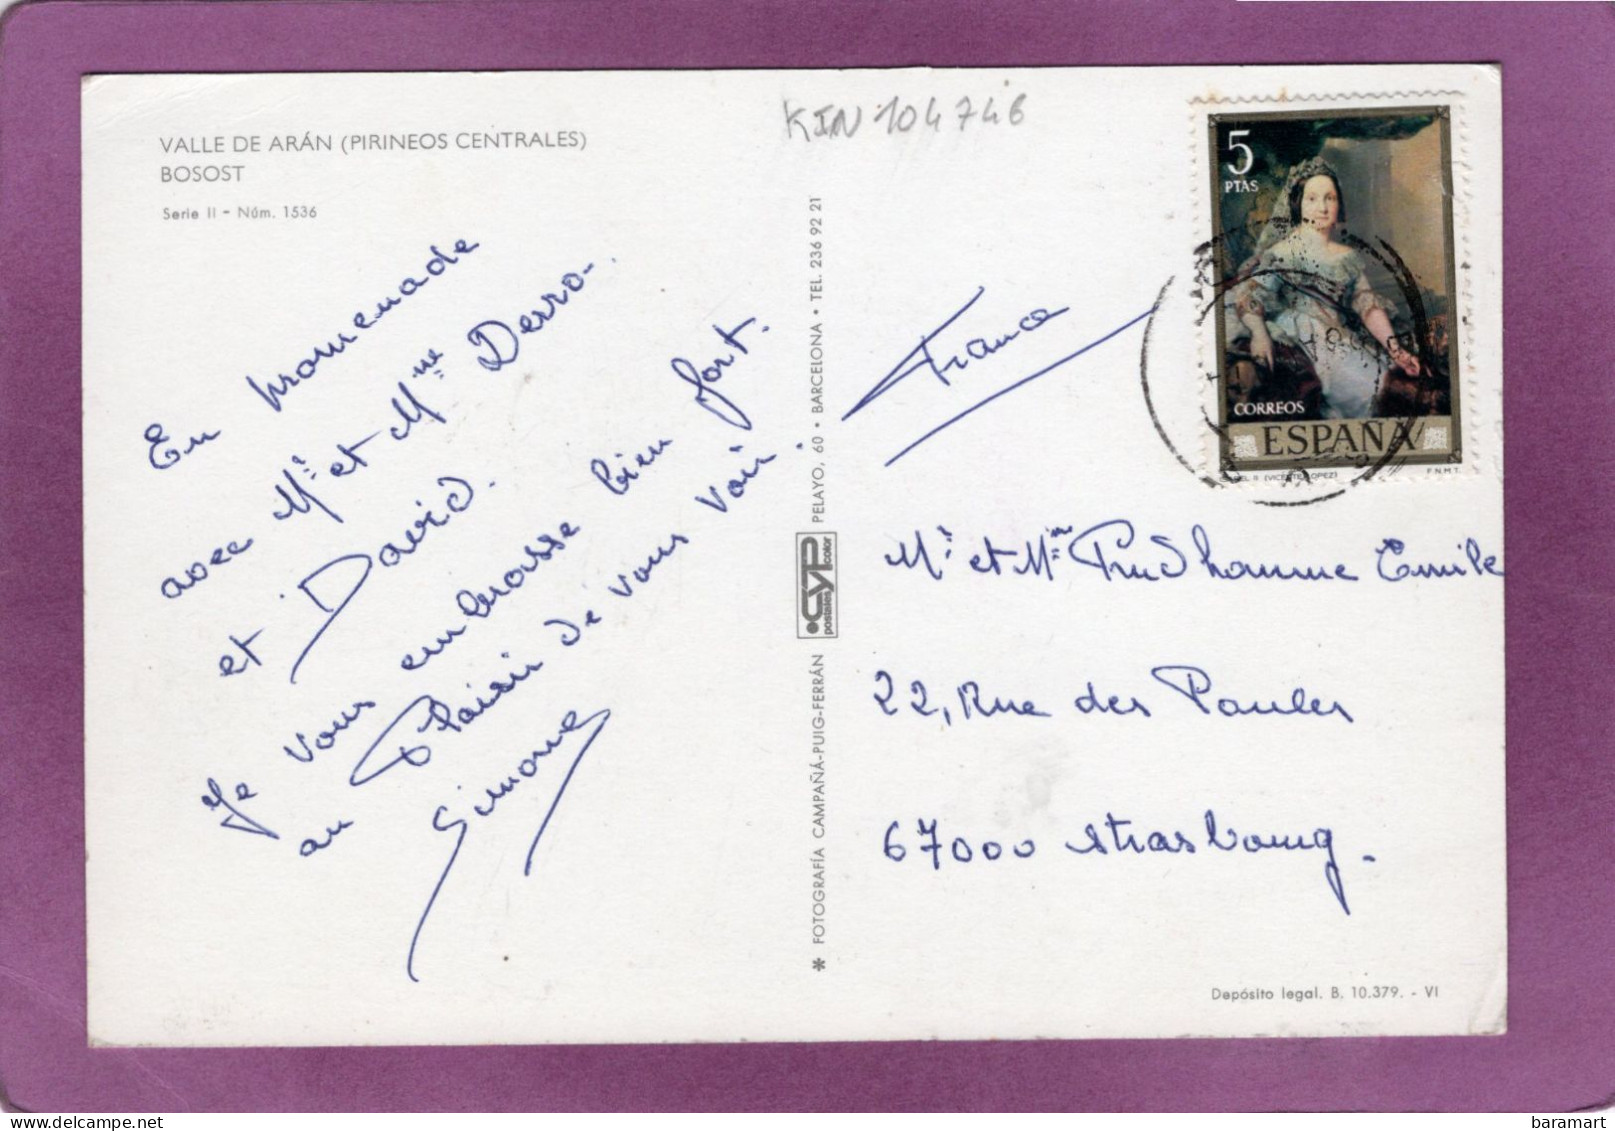 VALLE DE ARÁN (PIRINEOS CENTRALES)
BOSOST
Serie II - Núm. 1536
KIN 104746
En promenade
avec Mr et Mme Derro-
et David.
Je vous embrasse bien fort.
au Plaisir de vous voir.
Simone
* FOTOGRAFÍA CAMPAÑÁ-PUIG-FERRÁN
CYP
postales color
PELAYO, 60 • BARCELONA • TEL. 236 92 21
5
PTAS
CORREOS
ESPAÑA
ISABEL II (VICENTE LOPEZ)
F.N.M.T.
France
Mr et Mme Prudhomme Emile
22, Rue des Paules
67000 Strasbourg.
Depósito legal. B. 10.379. - VI
baramart